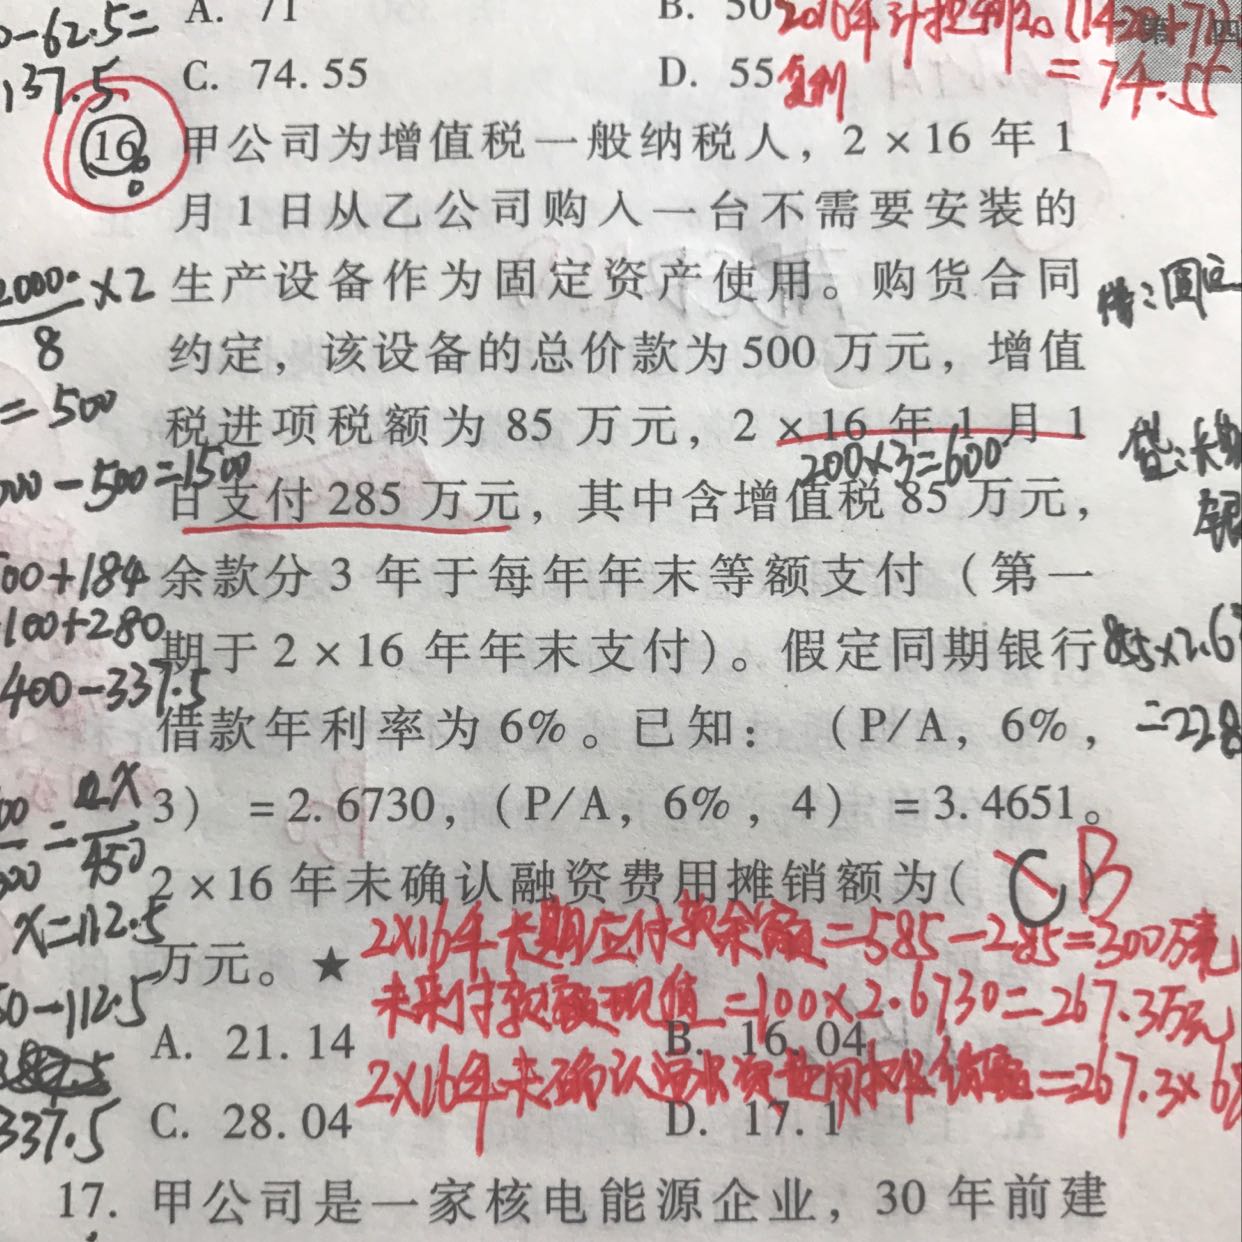 0-62.5=
A. 71
B. 50
137.5
C. 74.55
D. 55
复利
= 74.55
16
甲公司为增值税一般纳税人，2×16年1
月1日从乙公司购入一台不需要安装的
×2
生产设备作为固定资产使用。购货合同
8
约定，该设备的总价款为500万元，增值
= 500
税进项税额为85万元，2×16年1月1
200×3=600
00-500=1500
日支付285万元，其中含增值税85万元，
00+184
余款分3年于每年年末等额支付（第一
100+280
期于2×16年年末支付)。假定同期银行
400-337.5
借款年利率为6%。已知：（P/A，6%，
=228
3）=2.6730，（P/A，6%，4）=3.4651。
450
2×16年未确认融资费用摊销额为( C )
B
x=112.5
万元。★
2×16年长期应付款余额=585-285=300万元
50-112.5
未来付款额现值=100×2.6730=267.3万元
A. 21.14
B. 16.04
2×16年未确认融资费用摊销额=267.3×6%
337.5
C. 28.04
D. 17.1
17. 甲公司是一家核电能源企业，30年前建